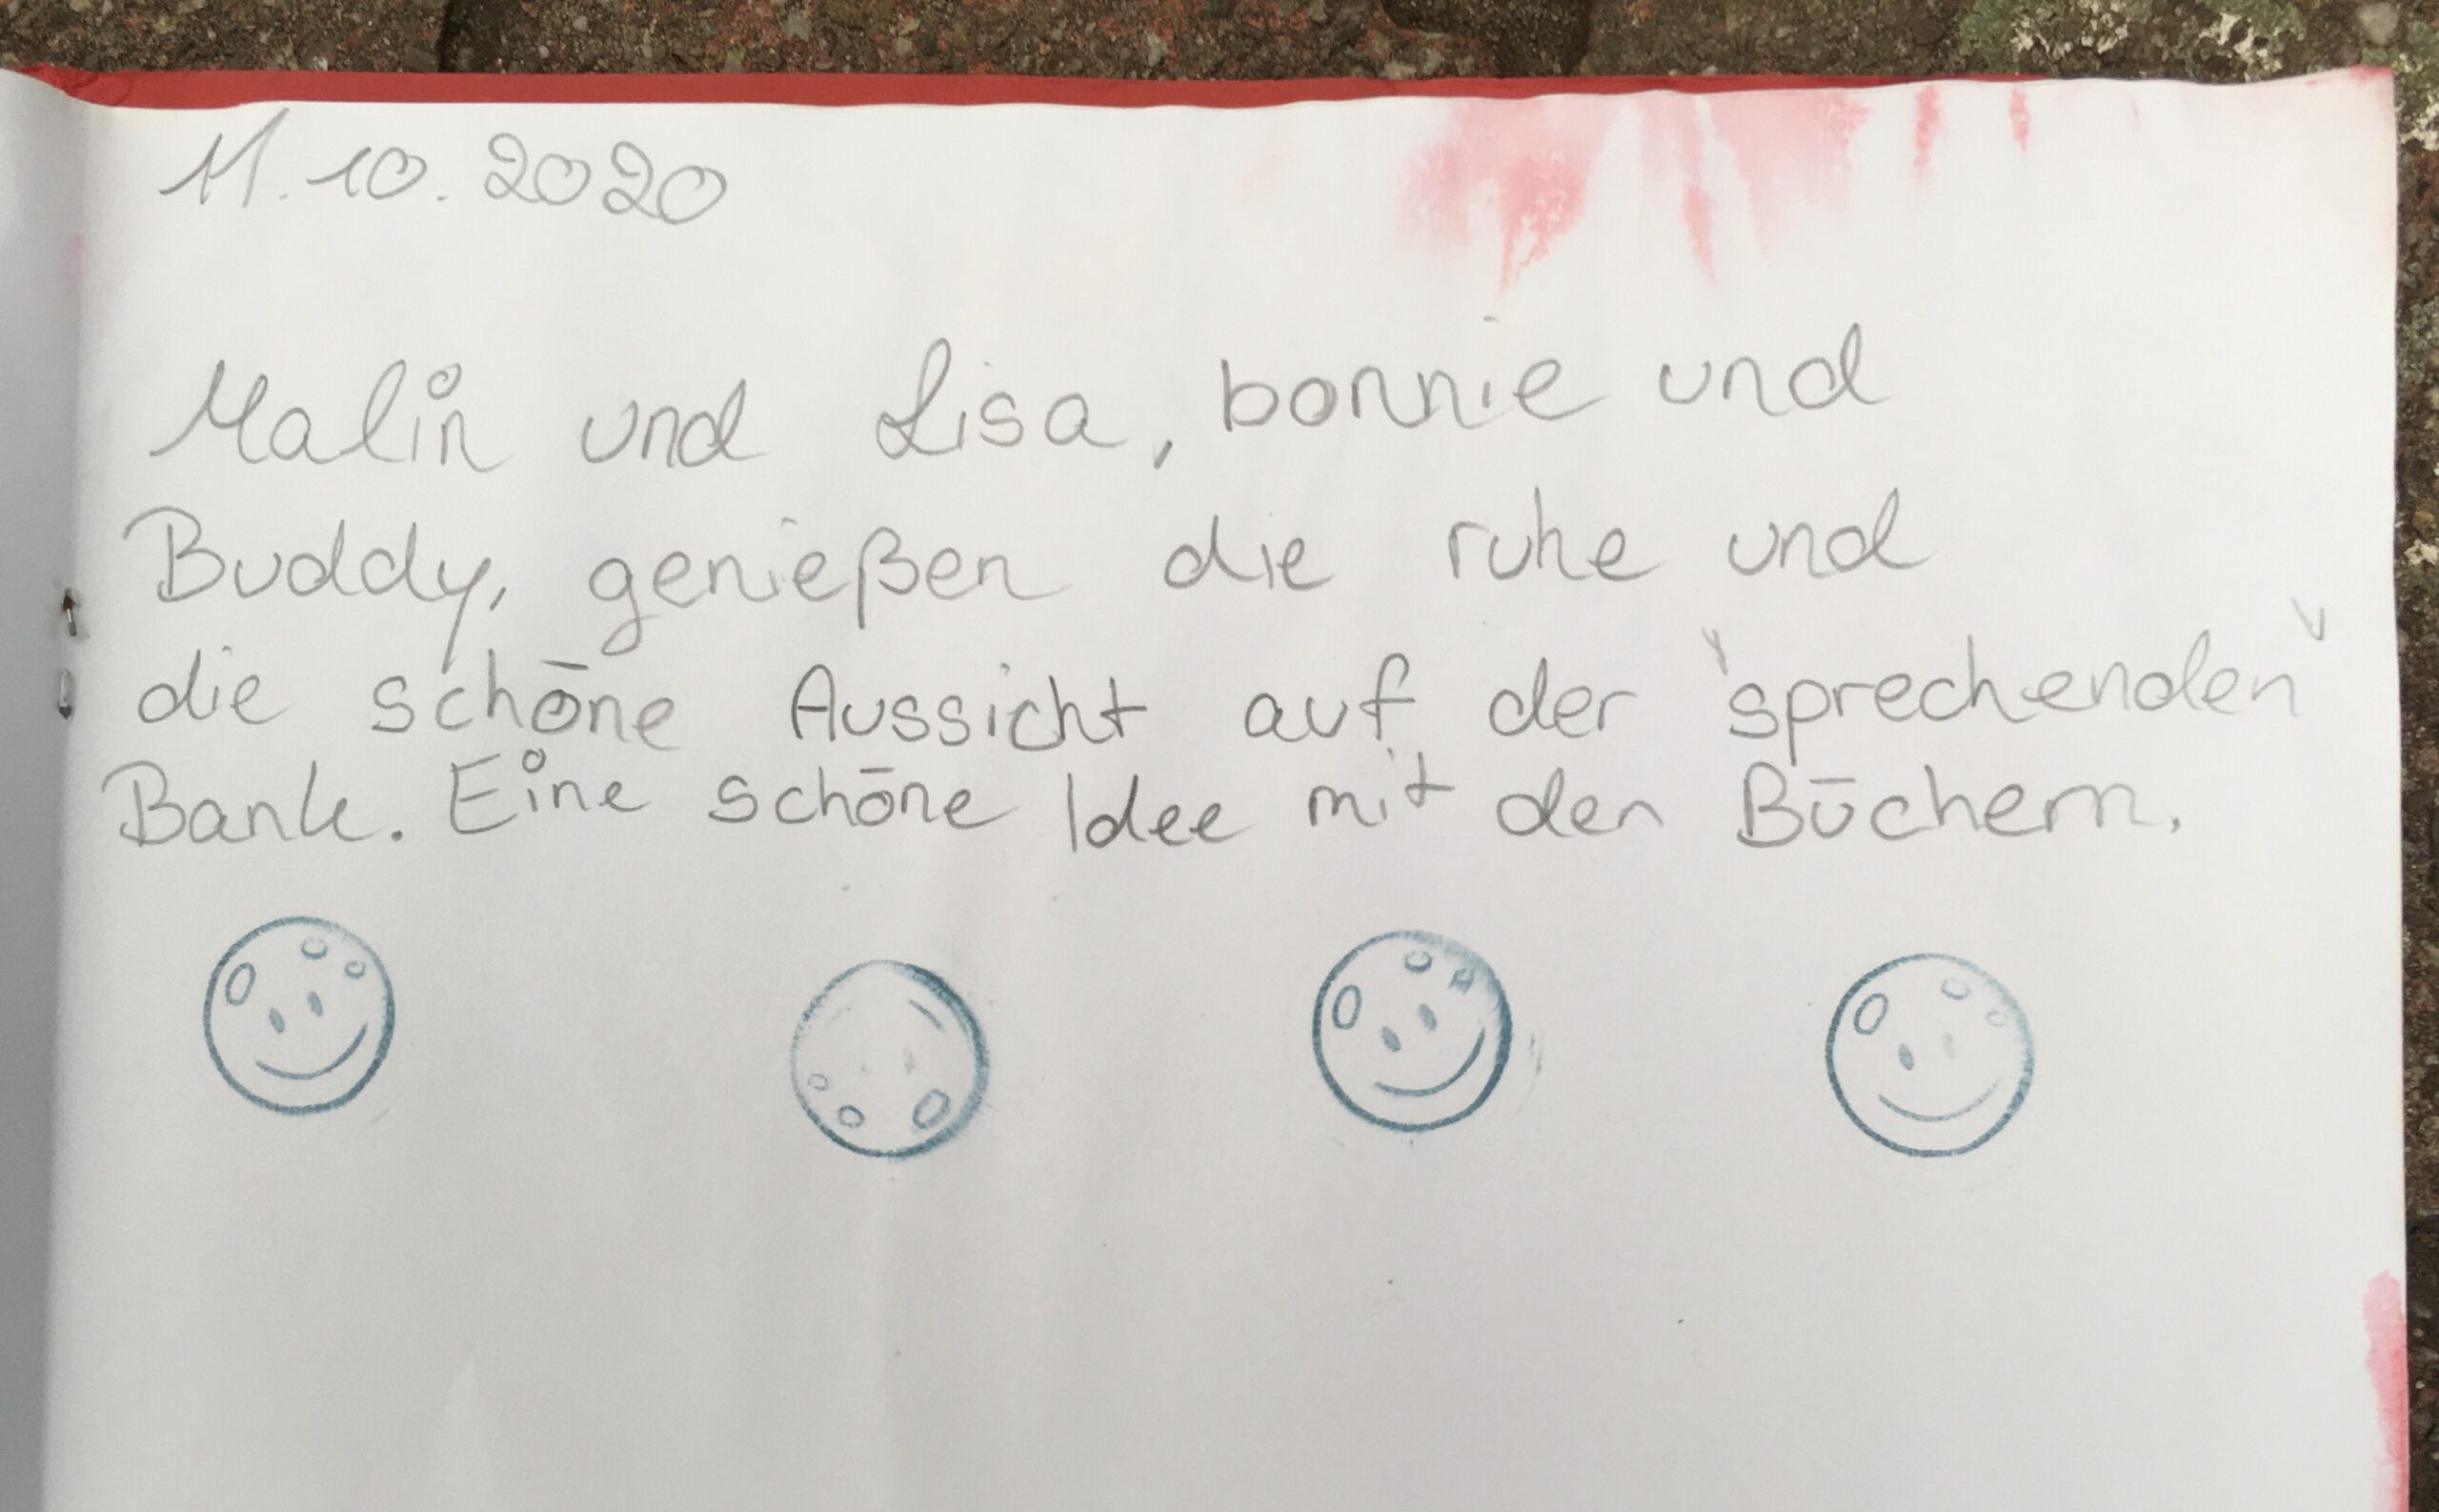 11.10.2020
Malin und Lisa, bonnie und
Buddy, genießen die ruhe und
die schöne Aussicht auf der "sprechenden"
Bank. Eine schöne Idee mit den Büchern.